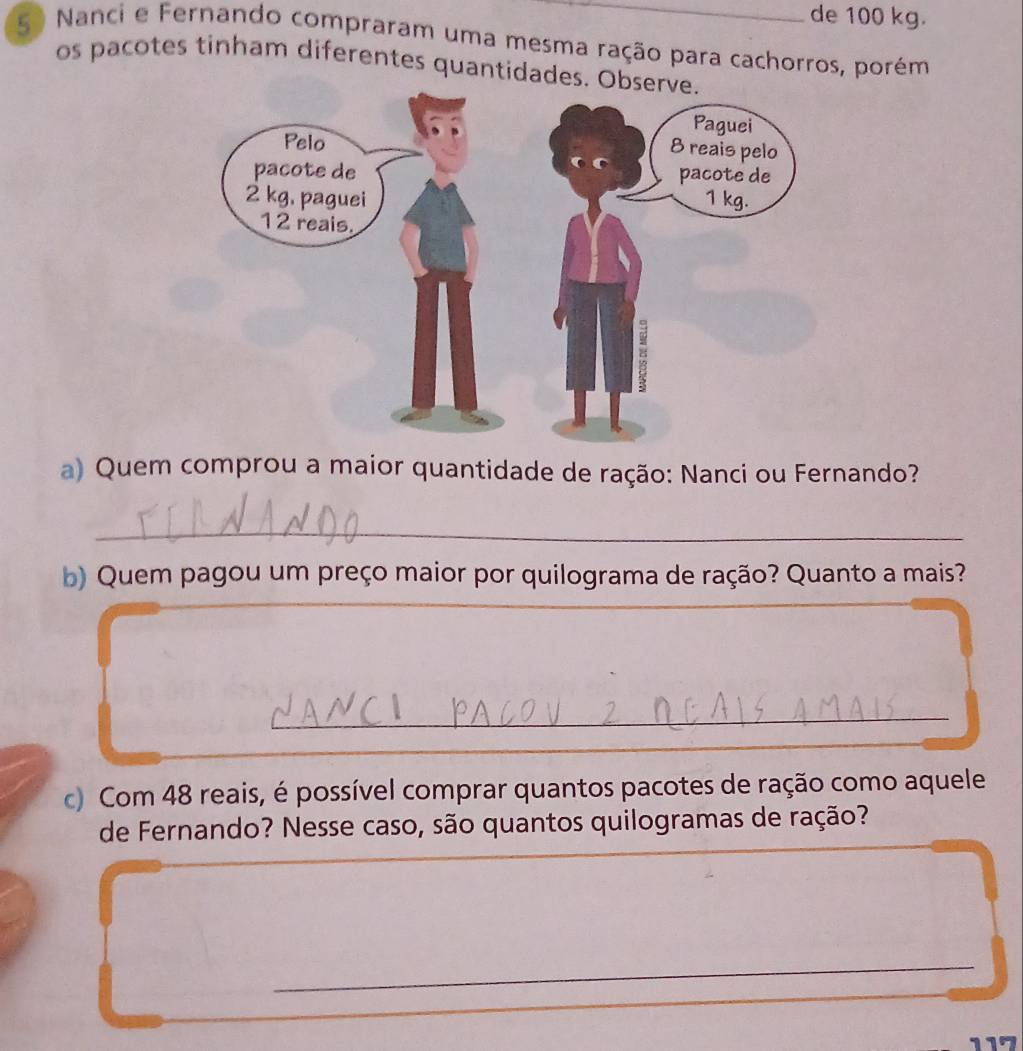 de 100 kg.
5 Nanci e Fernando compraram uma mesma ração para cachorros, porém
os pacotes tinham diferentes quantidades. Observe.
Pelo
pacote de
2 kg, paguei
12 reais.
Paguei
8 reais pelo
pacote de
1 kg.
MARCOS DE MELLO
a) Quem comprou a maior quantidade de ração: Nanci ou Fernando?
FERNANDO
b) Quem pagou um preço maior por quilograma de ração? Quanto a mais?
NANCI PAGOU 2 REAIS AMAIS
c) Com 48 reais, é possível comprar quantos pacotes de ração como aquele
de Fernando? Nesse caso, são quantos quilogramas de ração?
117